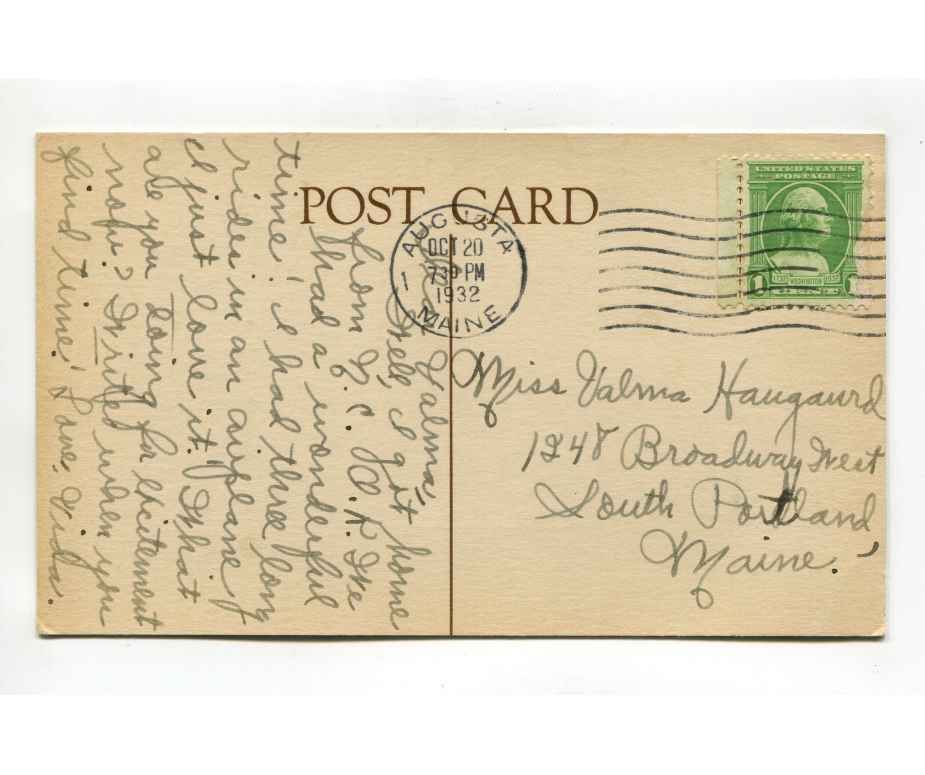 POST CARD
AUGUSTA
OCT 20
7 30 PM
1932
MAINE
1
UNITED STATES
POSTAGE
WASHINGTON
1 CENT 1
Valma,
Well, I got home
from N.C. O.K. We
had a wonderful
time! I had three long
rides in an airplane,
I just love it. What
are you doing for excitement
now? Write when you
find time! Love Vida.
Miss Valma Haugaurd
1248 Broadway West
South Portland
Maine.